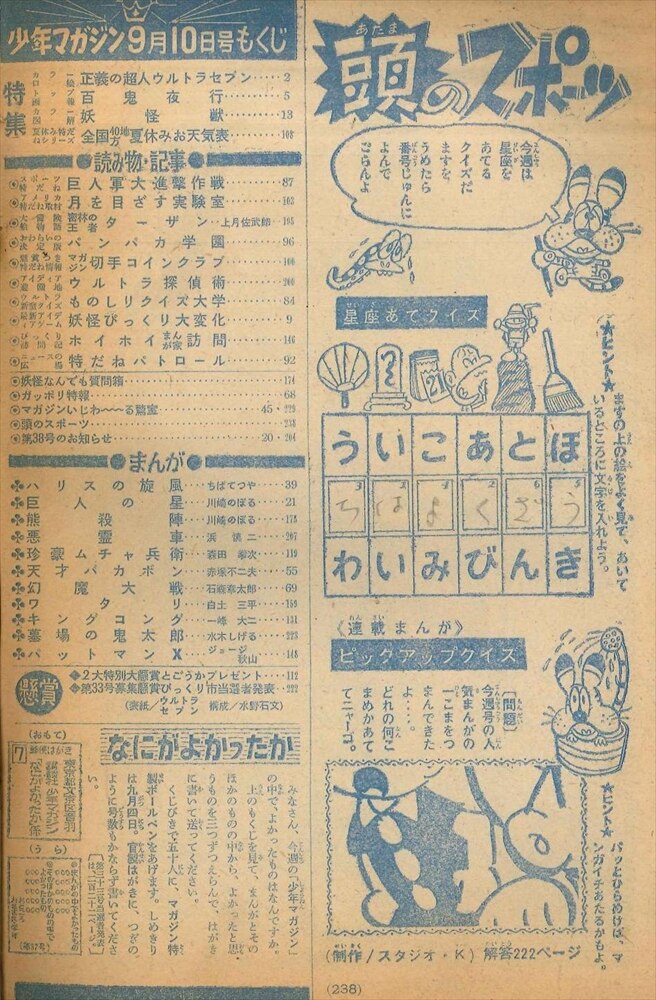 少年マガジン9月10日号もくじ
特集
正義の超人ウルトラセブン……2
百鬼夜行……5
妖怪獣……13
全国40地方夏休みお天気表……108
●読み物・記事●
巨人軍大進撃作戦……87
月を目ざす実験室……102
密林の王者ターザン…上月佐武郎…105
パンパカ学園……96
マガジン切手コインクラブ……100
ウルトラ探偵術……200
ものしりクイズ大学……84
妖怪びっくり大変化……9
ホイホイまんが家訪問……146
特だねパトロール……92
妖怪なんでも質問箱……174
ガッポリ特報……68
マガジンいじわ〜〜る驚室……45・229
頭のスポーツ……238
第38号のお知らせ……20・204
●まんが●
ハリスの旋風……ちばてつや……39
巨人の星……川崎のぼる……21
熊殺陣……川崎のぼる……178
悪霊車……浜慎二……207
珍豪ムチャ兵衛……森田拳次……119
天才バカボン……赤塚不二夫……55
幻魔大戦……石森章太郎……69
ワタリ……白土三平……159
キングコング……一峰大二……131
墓場の鬼太郎……水木しげる……223
バットマンX……ジョージ秋山……148
懸賞
2大特別大懸賞とごうかプレゼント……112
第33号募集懸賞びっくり市当選者発表……222
(表紙/ウルトラセブン 構成/水野石文)
なにがよかったか
みなさん、今週の「少年マガジン」
の中で、よかったものはなんですか。
上のもくじを見て、まんがとその
ほかのものの中から、よかったと思
うものを三つずつえらんで、はがき
に書いて送ってください。
くじびきで五十人に、マガジン特
製ボールペンをあげます。しめきり
は九月四日。官製はがきに、つぎの
ように号数もかならず書いてくださ
い。
(おもて)
郵便はがき
東京都文京区音羽
講談社 少年マガジン
「なにがよかったか」係
(うら)
(第37号)
頭のスポーツ
あたま
今週は
星座を
あてる
クイズだ
ますを、
うめたら
番号じゅんに
よんで
ごらんよ
星座あてクイズ
21
★ヒント★ ますの上の絵をよく見て、あいて
いるところに文字を入れよう。
ういこあとほ
ちはよくざう
わいみびんき
《連載まんが》
ピックアップクイズ
[問題]
今週号の人
気まんがの
一こまをつ
まんできた
よ…。
どれの何こ
まめかあて
てニャーゴ。
★ヒント★ パッとひらめけば、マ
ンガイチあたるかもよ。
(制作/スタジオ・K) 解答222ページ
(238)